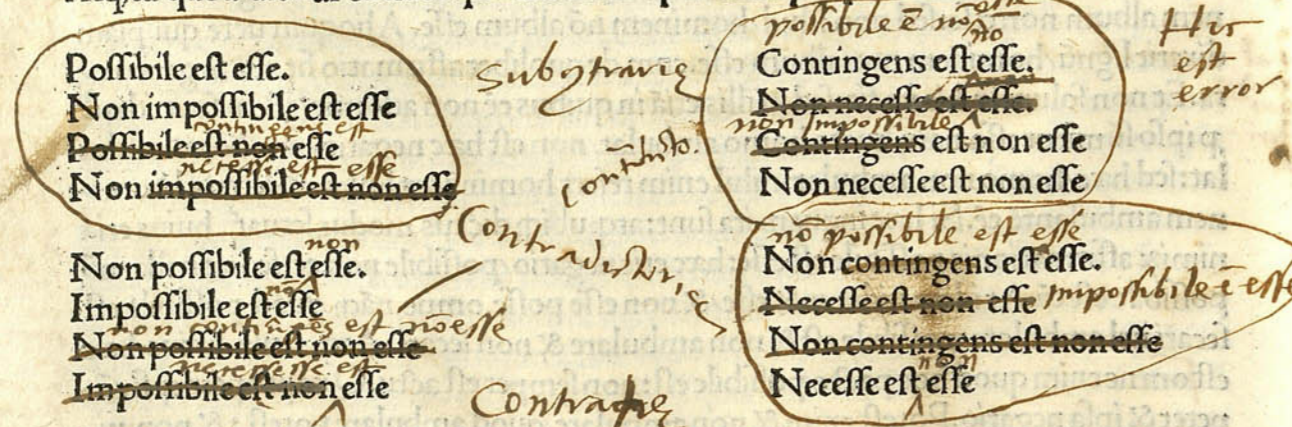 Possibile est esse.
Non impossibile est esse
contingens est
Possibile est non esse
necesse est esse
Non impossibile est non esse
non
Non possibile est esse.
Impossibile est esse
non contingēs est nōesse
Non possibile est non esse
Impossibile est non esse
Contradictorie
possibile ē nō esse
nō
Contingens est esse.
Non necesse est esse.
non impossibile
Contingens est non esse
Non necesse est non esse
Hic
est
error
nō possibile est esse
Non contingens est esse.
Necesse est non esse Impossibile ē esse
Non contingens est non esse
non
Necesse est esse